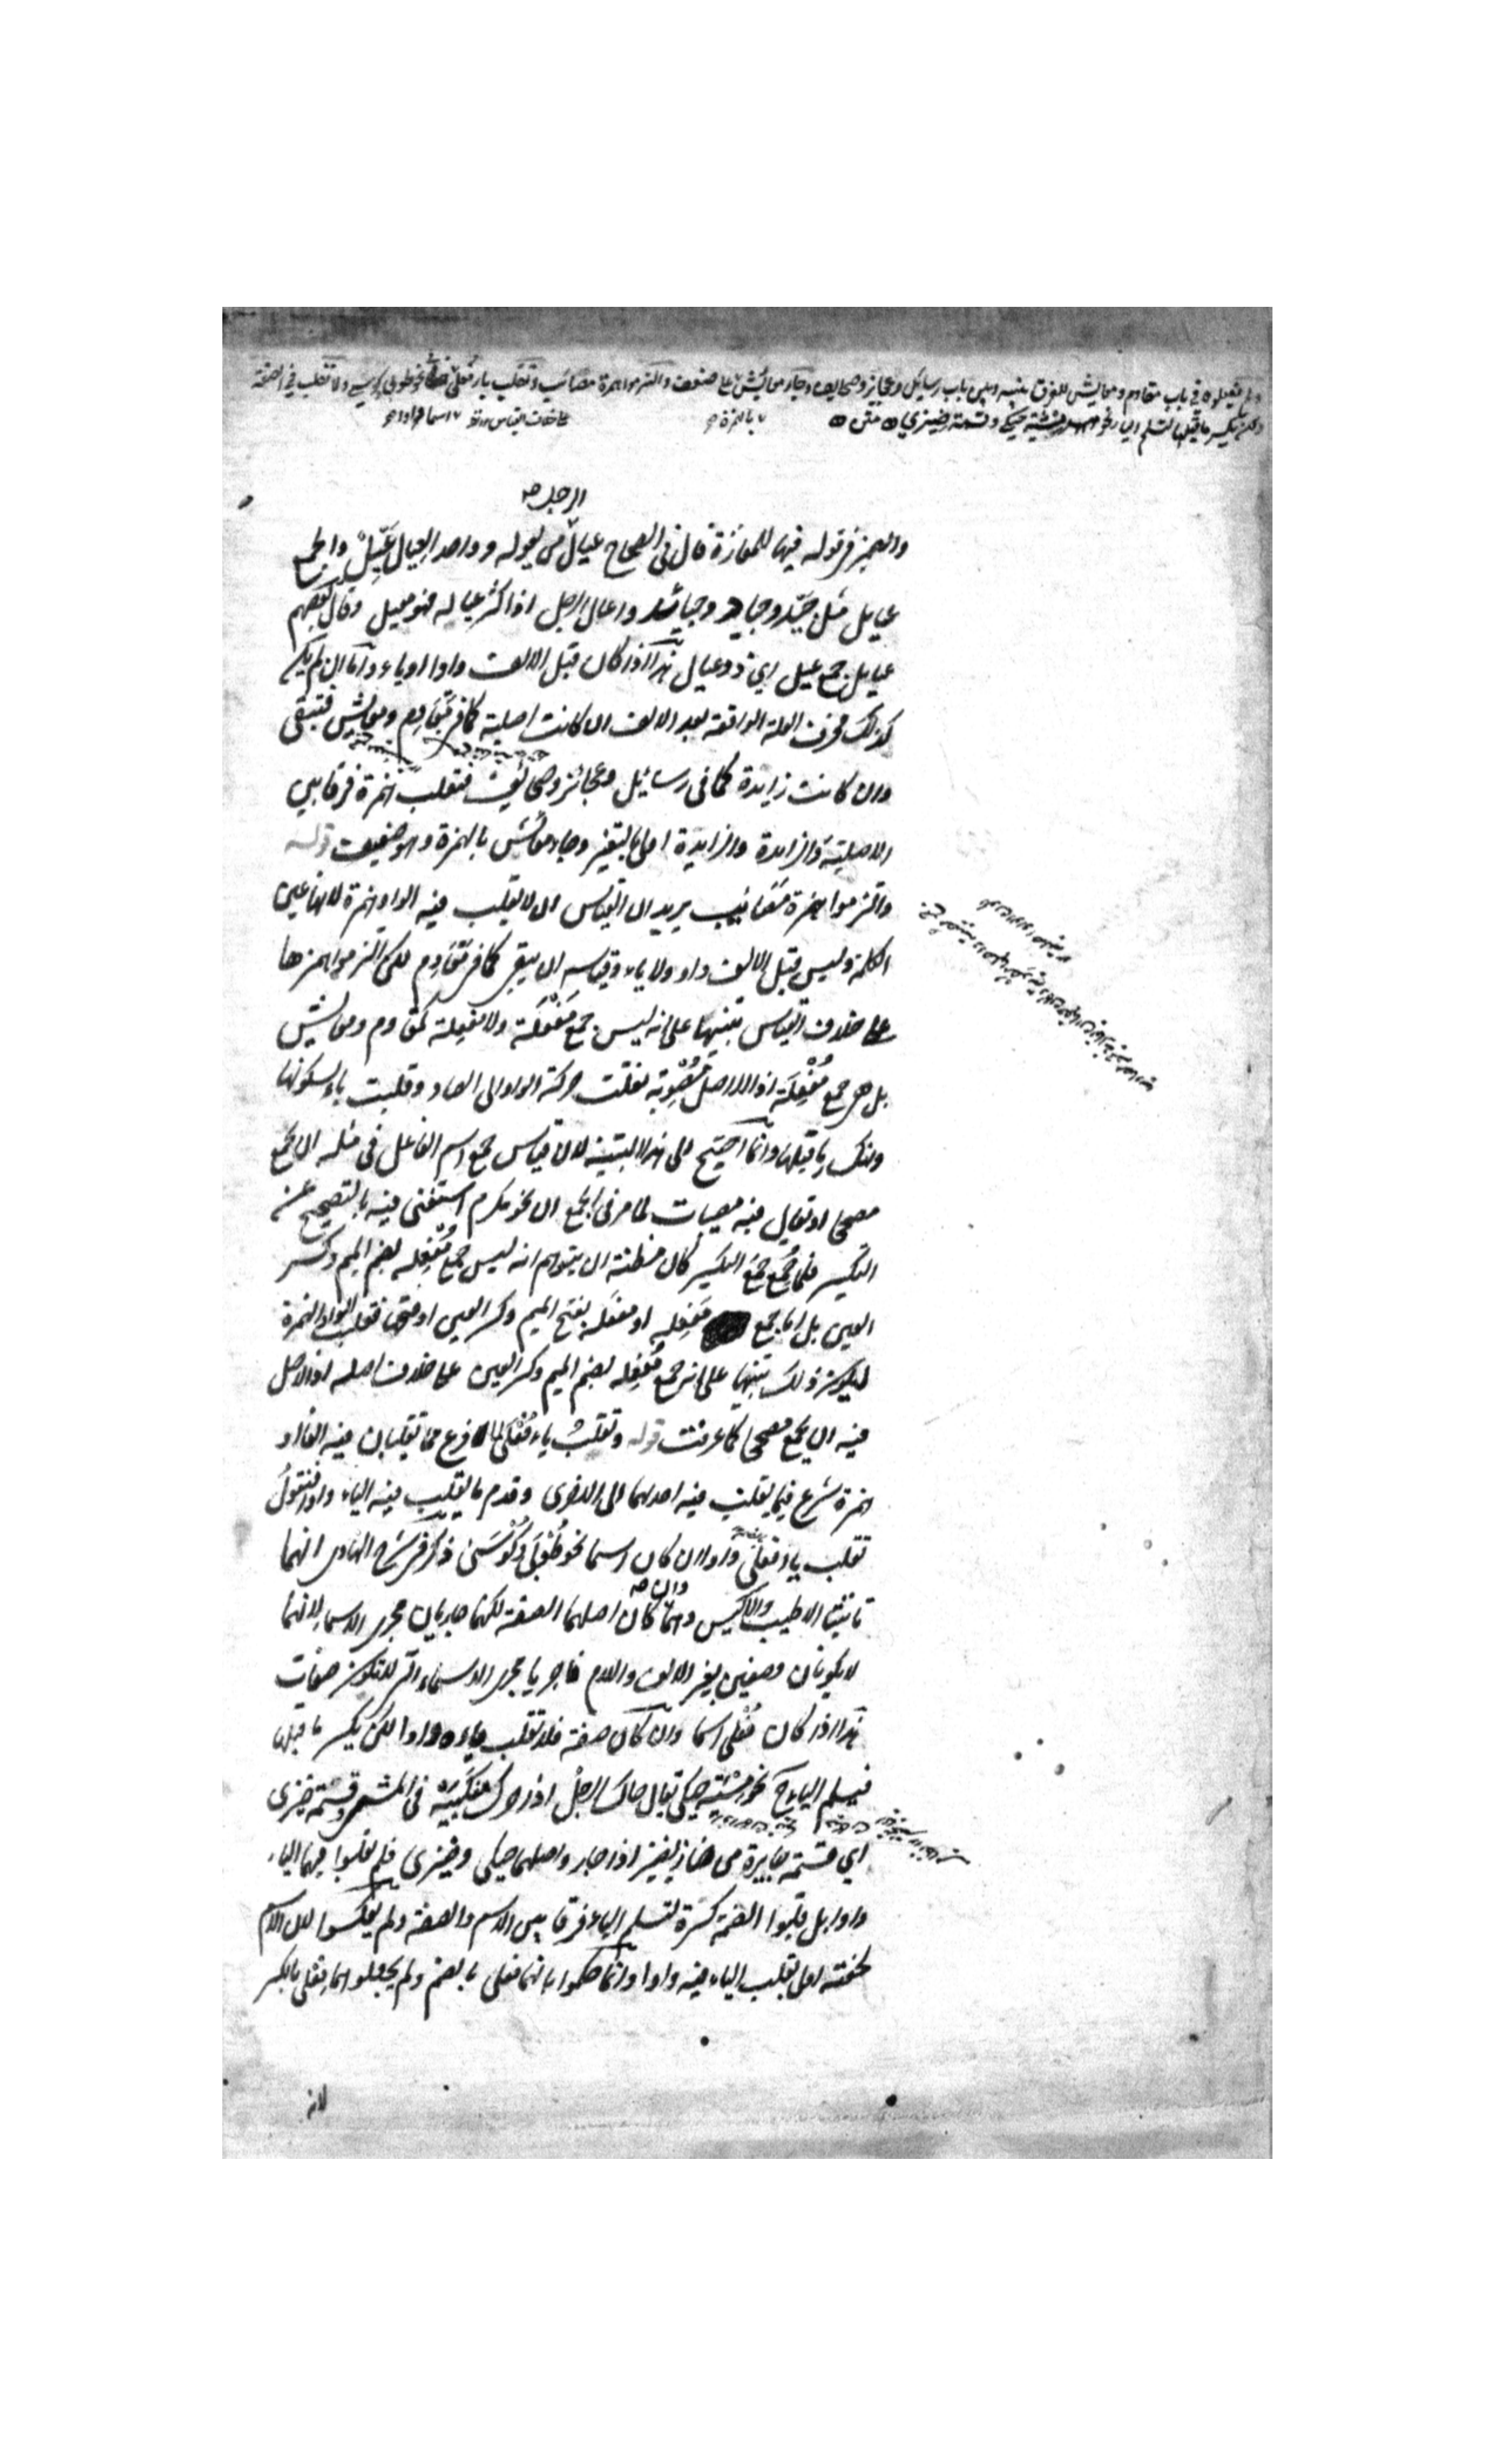 ولم يفعلوه في باب مقاوم ومعايش للفرق بينه وبين باب رسايل وعجايز وصحايف وجاء معائش على ضعف والتزموا همزة مصائب وتقلب ياء فعلى اسما نحو طوبى وكوسى ولا تقلب في الصفة
ولكن يكسر ما قبلها لتسلم الياء نحو مشية حيكى وقسمة ضيزى متن
الرجل صح
والضمير في قوله فيها للمفازة قال في الصحاح عيال من يعوله وواحد العيال عيّل والجمع
عيايل مثل جيّد وجياد وجيائد واعال الرجل اذا كثر عياله فهو معيل وقال بعضهم
عيايل جمع عيل اي ذو عيال هذا اذا كان قبل الالف واو او ياء واما ان لم يكن
كذلك فحرف العلة الواقعة بعد الالف ان كانت اصلية كما في مقاوم ومعايش فتبقى
وان كانت زايدة كما في رسائل وعجائز وصحائف فتقلب همزة فرقا بين
الاصلية والزايدة والزايدة اولى بالتغير وجاء معائش بالهمزة وهو ضعيف قوله
والتزموا همزة مصائب يريد ان القياس ان لا يقلب فيه الواو همزة لانها عين
الكلمة وليس قبل الالف واو ولا ياء وقياسه ان يبقى كما في مقاوم لكن التزموا همزها
على خلاف القياس تنبيها على انه ليس جمع مفعلة ولا مفعلة كمقاوم ومعايش
بل هي جمع مفعلة اذ الاصل مصوبة نقلت حركة الواو الى الصاد وقلبت ياء لسكونها
وانكسار ما قبلها وانما احتيج الى هذا التنبيه لان قياس جمع اسم الفاعل في مثله ان يجمع
مصححا او يقال فيه مصيبات لما مر في الجمع ان نحو مكرم استغنى فيه بالتصحيح عن
التكسير فلما جمع جمع التكسير كان مظنة ان يتوهم انه ليس جمع مفعله بضم الميم وكسر
العين بل انما جمع مفعله او مفعله بفتح الميم وكسر العين او فتحها فقلب الواو همزة
ليكون ذلك تنبيها على انه جمع مفعله بضم الميم وكسر العين على خلاف اصله اذ الاصل
فيه ان يجمع مصححا كما عرفت قوله وتقلب ياء فعلى لما فرغ مما تقلبان فيه الفا او
همزة شرع فيما يقلب فيه احدهما الى الاخرى وقدم ما يقلب فيه الياء واوا فنقول
تقلب ياء فعلى واوا ان كان اسما نحو طوبى وكوسى ذكر في شرح الهادي انهما
تانيثا الاطيب والاكيس وهما وان صح كان اصلهما الصفة لكنهما جاريان مجرى الاسماء لانهما
لا يكونان وصفين بغير الالف واللام فاجريا مجرى الاسماء التي لا تكون صفات
هذا اذا كان فعلى اسما وان كان صفة فلا تقلب ياءه واوا لكن يكسر ما قبلها
فيسلم الياء نحو مشية حيكى يقال حاك الرجل اذا حرك منكبيه في المشي وقسمة ضيزى
اي قسمة جايرة من ضاز يضيز اذا جار واصلهما حيكى وضيزى فلم تقلبوا فيهما الياء
واوا بل قلبوا الضمة كسرة لتسلم الياء فرقا بين الاسم والصفة ولم يعكسوا لان الاسم
لخفته اولى بقلب الياء فيه واوا وانما حكموا بانهما فعلى بالضم ولم يجعلوهما فعلى بالكسر
لانه